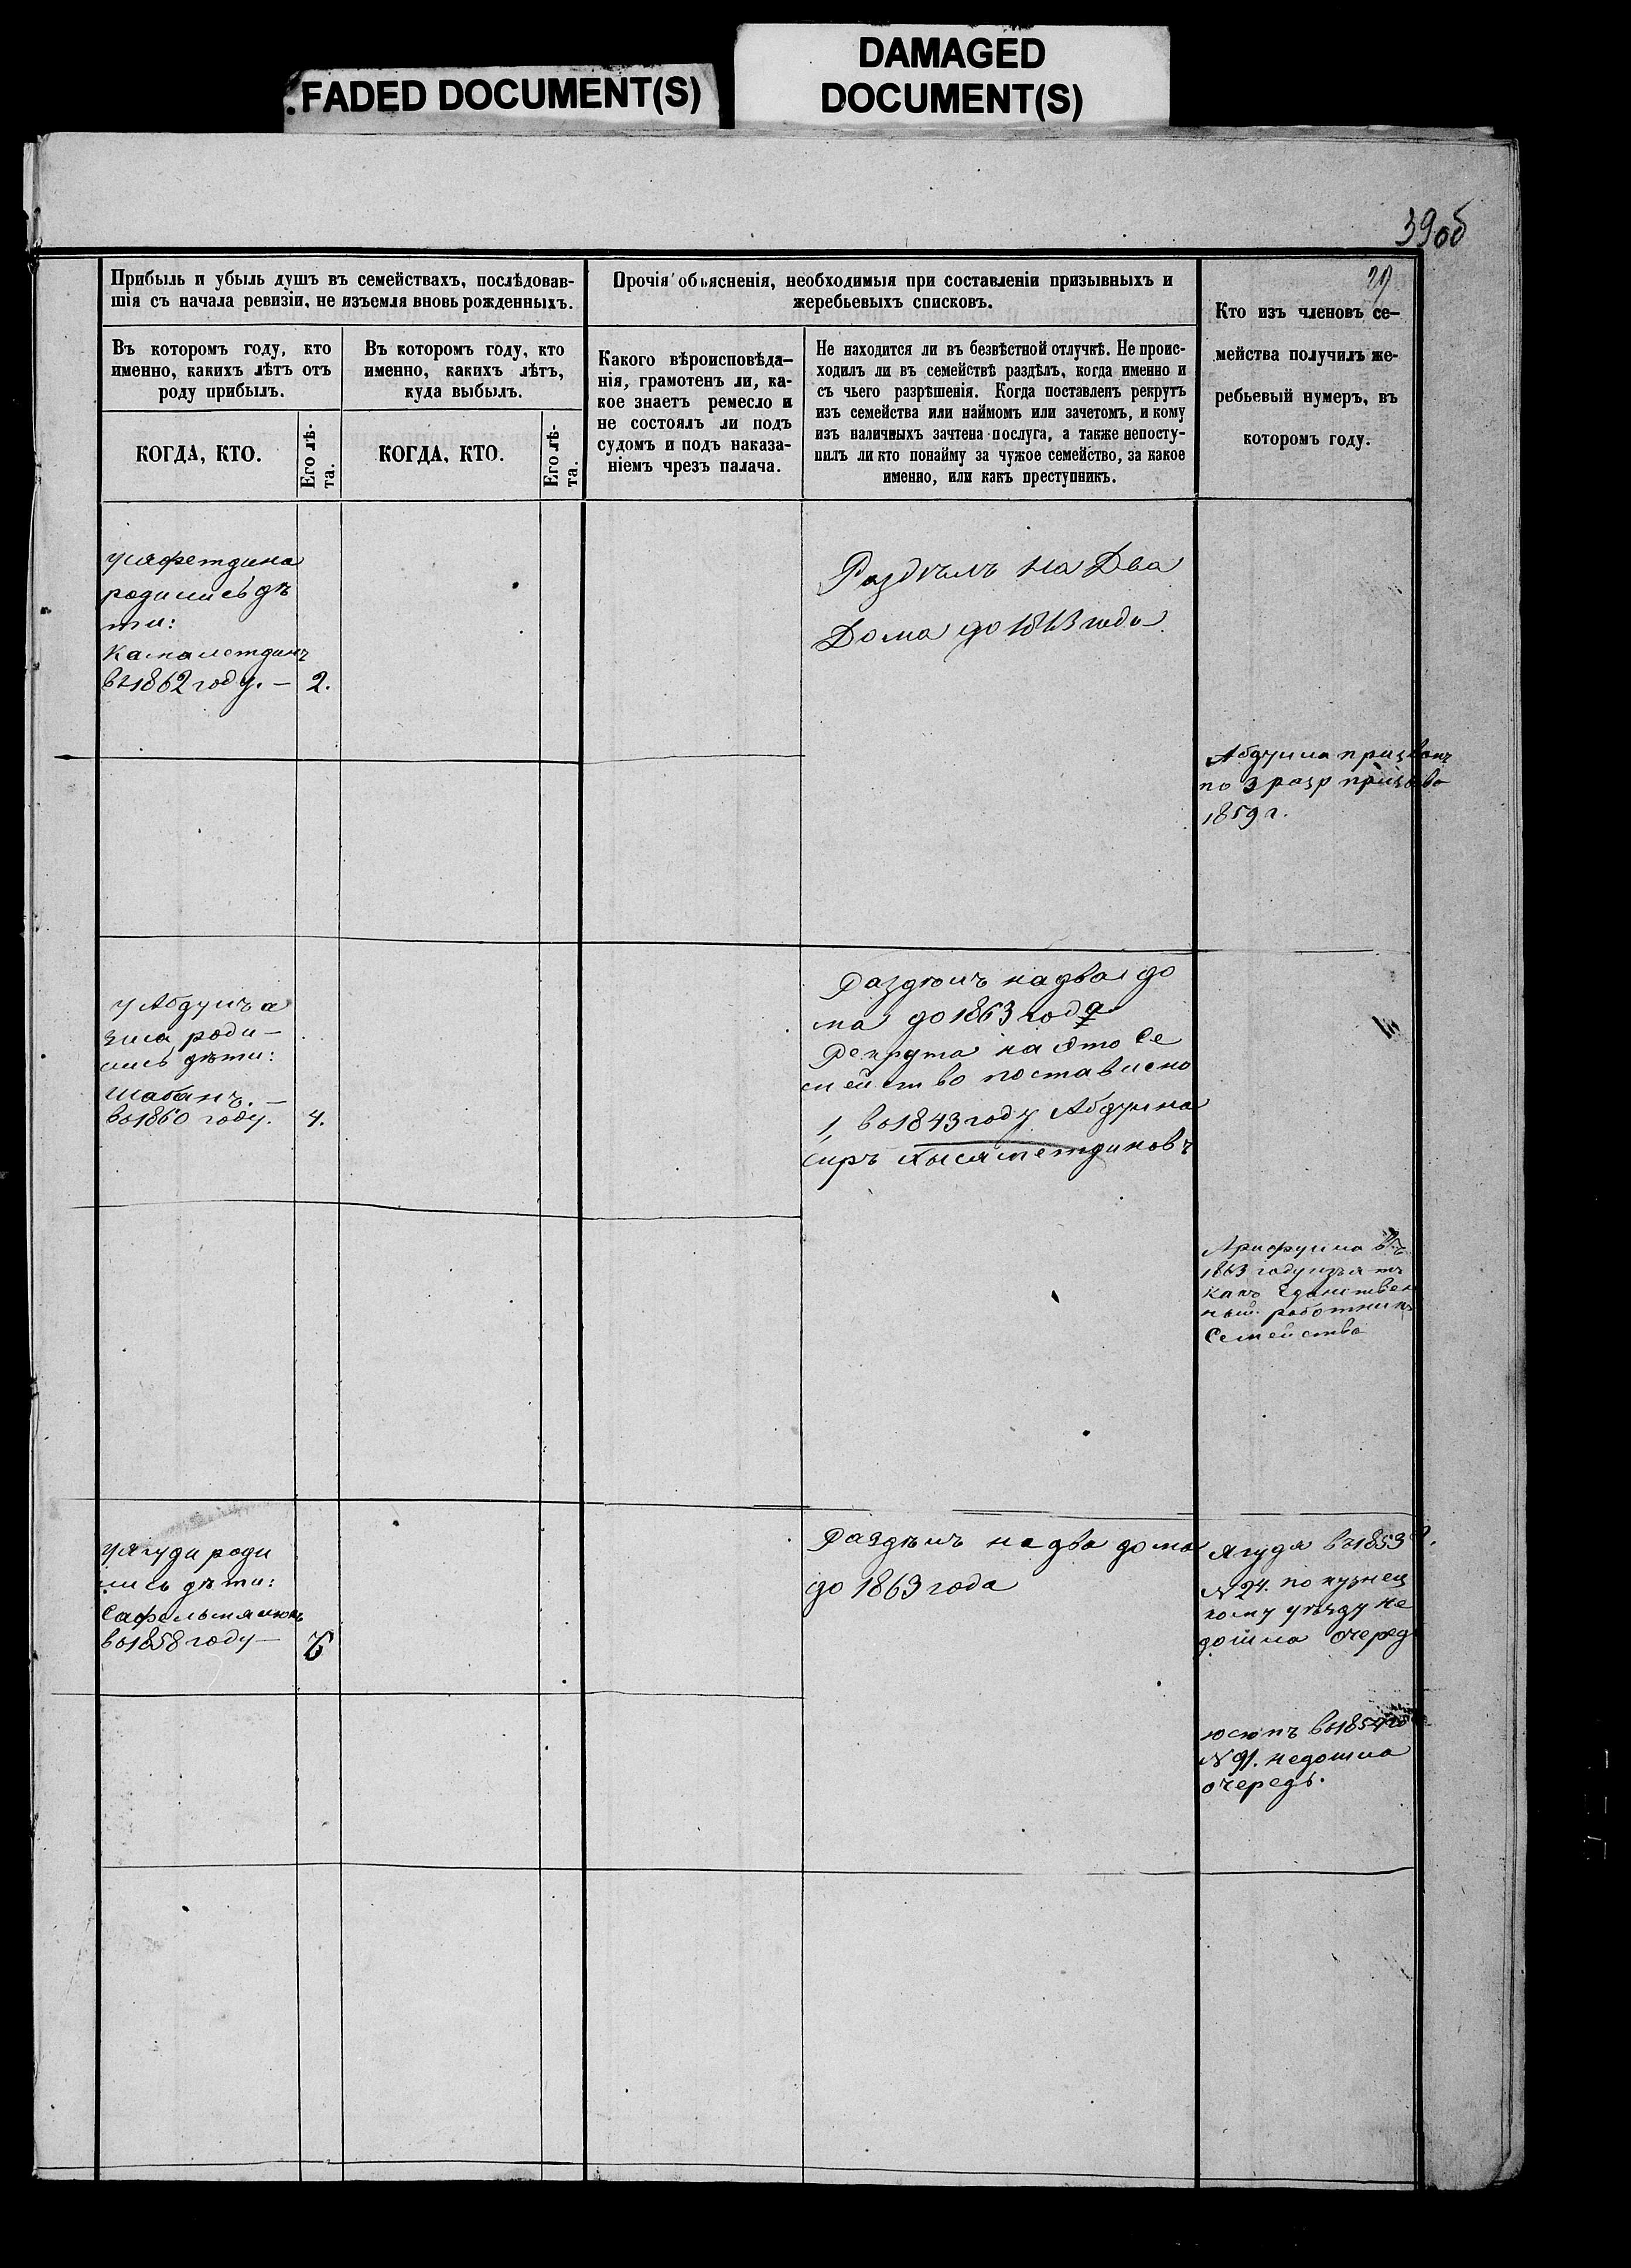 FADED DOCUMENT(S)
DAMAGED
DOCUMENT(S)
39об
Прибыль и убыль душъ въ семействахъ, послѣдовав-
шія съ начала ревизіи, не изъемля вновь рожденныхъ.
Въ которомъ году, кто
именно, какихъ лѣтъ отъ
роду прибылъ.
КОГДА, КТО.
Его лѣ-
та.
Въ которомъ году, кто
именно, какихъ лѣтъ,
куда выбылъ.
КОГДА, КТО.
Его лѣ-
та.
Прочія объясненія, необходимыя при составленіи призывныхъ и
жеребьевыхъ списковъ.
Какого вѣроисповѣда-
нія, грамотенъ ли, ка-
кое знаетъ ремесло и
не состоялъ ли подъ
судомъ и подъ наказа-
ніемъ чрезъ палача.
Не находится ли въ безвѣстной отлучкѣ. Не проис-
ходилъ ли въ семействѣ раздѣлъ, когда именно и
съ чьего разрѣшенія. Когда поставленъ рекрутъ
изъ семейства или наймомъ или зачетомъ, и кому
изъ наличныхъ зачтена послуга, а также непосту-
пилъ ли кто понайму за чужое семейство, за какое
именно, или какъ преступникъ.
Кто изъ членовъ се-
мейства получилъ же-
ребьевый нумеръ, въ
которомъ году.
родились дѣ
ти:
Камалетдинъ
въ 1862 году. — 2.
Раздѣлъ на Два
Дома до года
Абдулла призванъ
по 3 разр призыва
1859 г.
у Абдулъ а
зиса роди—
лись дѣти:
Шабанъ. —
въ 1860 году. 4.
Раздѣлъ на два до
ма до 1863 года
Рекрута на это Се
мейство поставлено
1, въ 1843 году Абдулна
сыръ
Арифулла въ
1863 году изъятъ
какъ Единствен
ный работникъ
Семейства
у Ягуди роди
лись дѣти:
въ 1858 году — 6
Раздѣлъ на два дома
до 1863 года
Ягудя въ 1853 г.
N 24. по кузнец
кому уѣзду не
дошла очередь
Юсюпъ въ 1854 го
N 91. недошла
очередь.